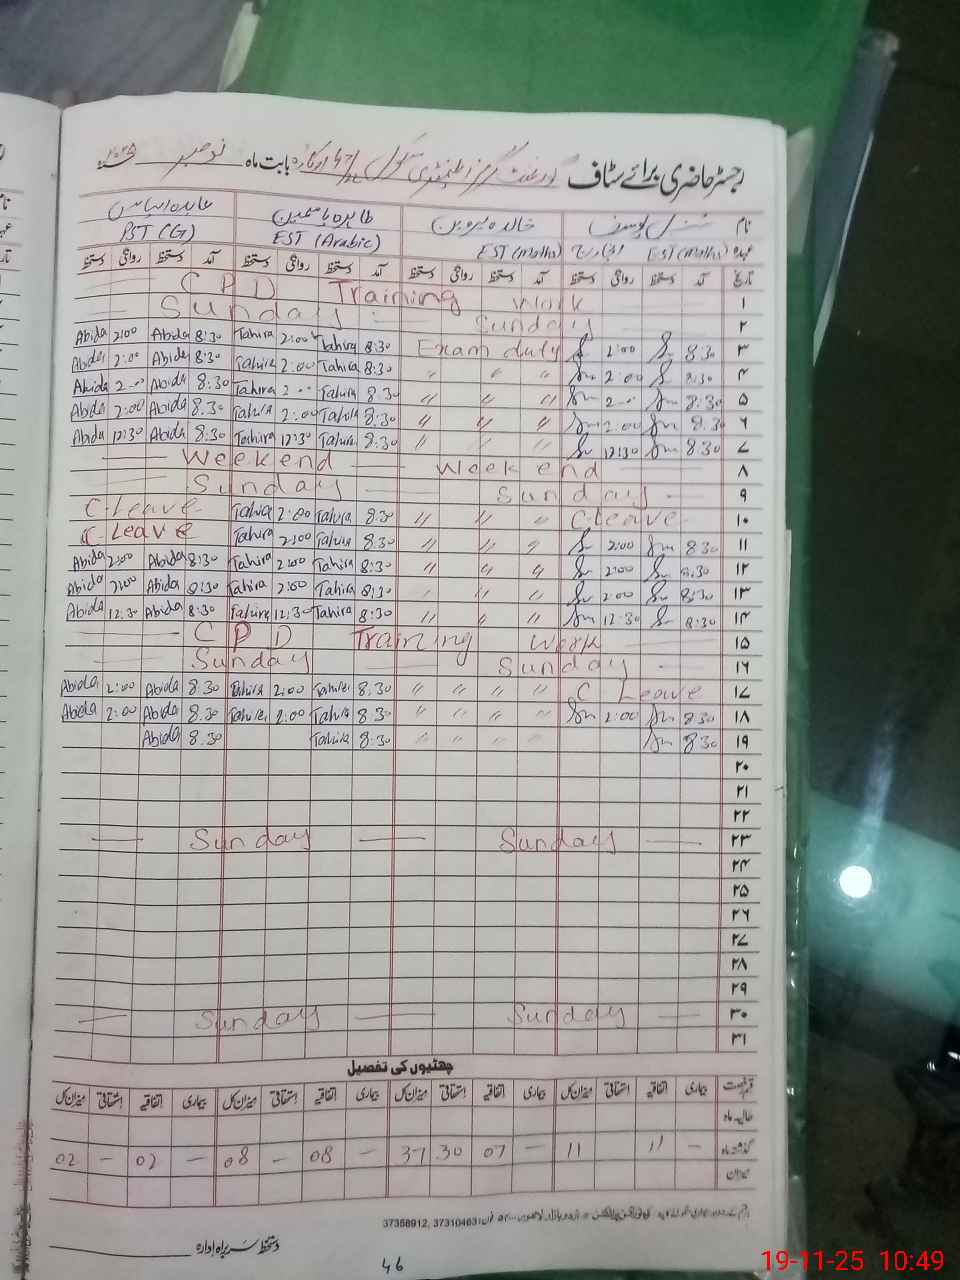 رجسٹر حاضری برائے سٹاف گورنمنٹ گرلز ایلیمنٹری سکول بابت ماہ نومبر ۲۰۲۵
نام خالدہ پروین طاہرہ یاسمین عابدہ الیاس
عہدہ EST (Maths) انچارج EST (Maths) EST (Arabic) PST (G)
تاریخ آمد دستخط روانگی دستخط آمد دستخط روانگی دستخط آمد روانگی دستخط دستخط روانگی دستخط
۱ C P D Training Work
۲ Sunday Sunday
۳ Abida 2:00 Abida 8:30 Tahira 2:00 Tahira 8:30 Exam duty 2:00 8:30
۴ Abida 2:00 Abida 8:30 Tahira 2:00 Tahira 8:30 〃 〃 〃 2:00 8:30
۵ Abida 2:00 Abida 8:30 Tahira 2:00 Tahira 8:30 〃 〃 〃 2:00 8:30
۶ Abida 2:00 Abida 8:30 Tahira 2:00 Tahira 8:30 〃 〃 〃 2:00 8:30
۷ Abida 12:30 Abida 8:30 Tahira 12:30 Tahira 8:30 〃 〃 〃 12:30 8:30
۸ Weekend Week end
۹ Sunday Sunday
۱۰ C.Leave Tahira 2:00 Tahira 8:30 〃 〃 〃 C.Leave
۱۱ C.Leave Tahira 2:00 Tahira 8:30 〃 〃 〃 2:00 8:30
۱۲ Abida 2:00 Abida 8:30 Tahira 2:00 Tahira 8:30 〃 〃 〃 2:00 8:30
۱۳ Abida 2:00 Abida 8:30 Tahira 2:00 Tahira 8:30 〃 〃 〃 2:00 8:30
۱۴ Abida 12:30 Abida 8:30 Tahira 12:30 Tahira 8:30 〃 〃 〃 12:30 8:30
۱۵ C P D Training Work
۱۶ Sunday Sunday
۱۷ Abida 2:00 Abida 8:30 Tahira 2:00 Tahira 8:30 〃 〃 〃 〃 C Leave
۱۸ Abida 2:00 Abida 8:30 Tahira 2:00 Tahira 8:30 〃 〃 〃 〃 2:00 8:30
۱۹ Abida 8:30 Tahira 8:30 〃 〃 〃 〃 8:30
۲۰
۲۱
۲۲
۲۳ Sunday Sunday
۲۴
۲۵
۲۶
۲۷
۲۸
۲۹
۳۰ Sunday Sunday
۳۱
چھٹیوں کی تفصیل
قسم رخصت بیماری اتفاقیہ استحقاقی میزان کل بیماری اتفاقیہ استحقاقی میزان کل بیماری اتفاقیہ استحقاقی میزان کل بیماری اتفاقیہ استحقاقی میزان کل
حالیہ ماہ
گذشتہ ماہ 02 - 02 - 08 - 08 - 37 30 07 - 11 11 -
میزان
37358912, 37310463
دستخط سربراہ ادارہ
46
19-11-25 10:49